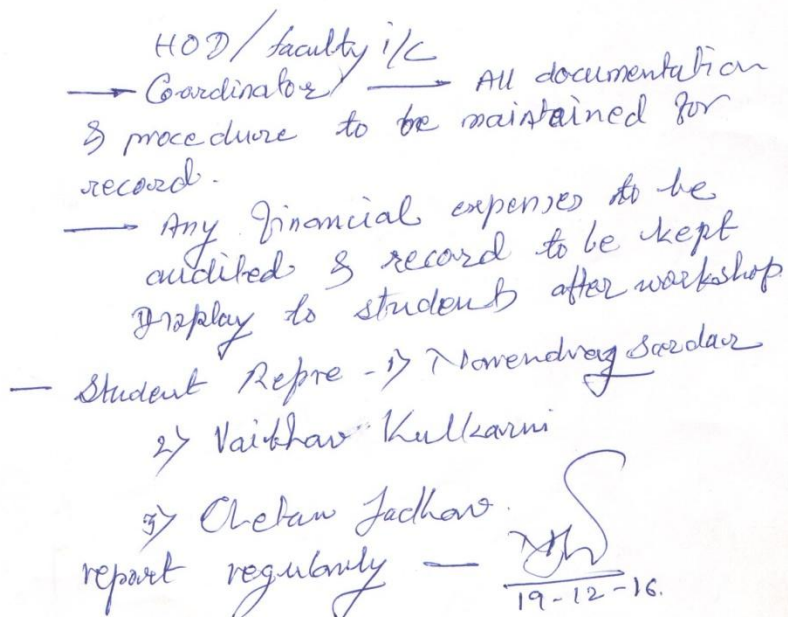 HOD/faculty i/c
→ Coordinator → All documentation
& procedure to be maintained for
record.
→ Any financial expenses to be
audited & record to be kept
Display to students after workshop
— Student Repre - 1) Narendra Sardar
2) Vaibhav Kulkarni
3) Chetan Jadhav.
report regularly —
19-12-16.